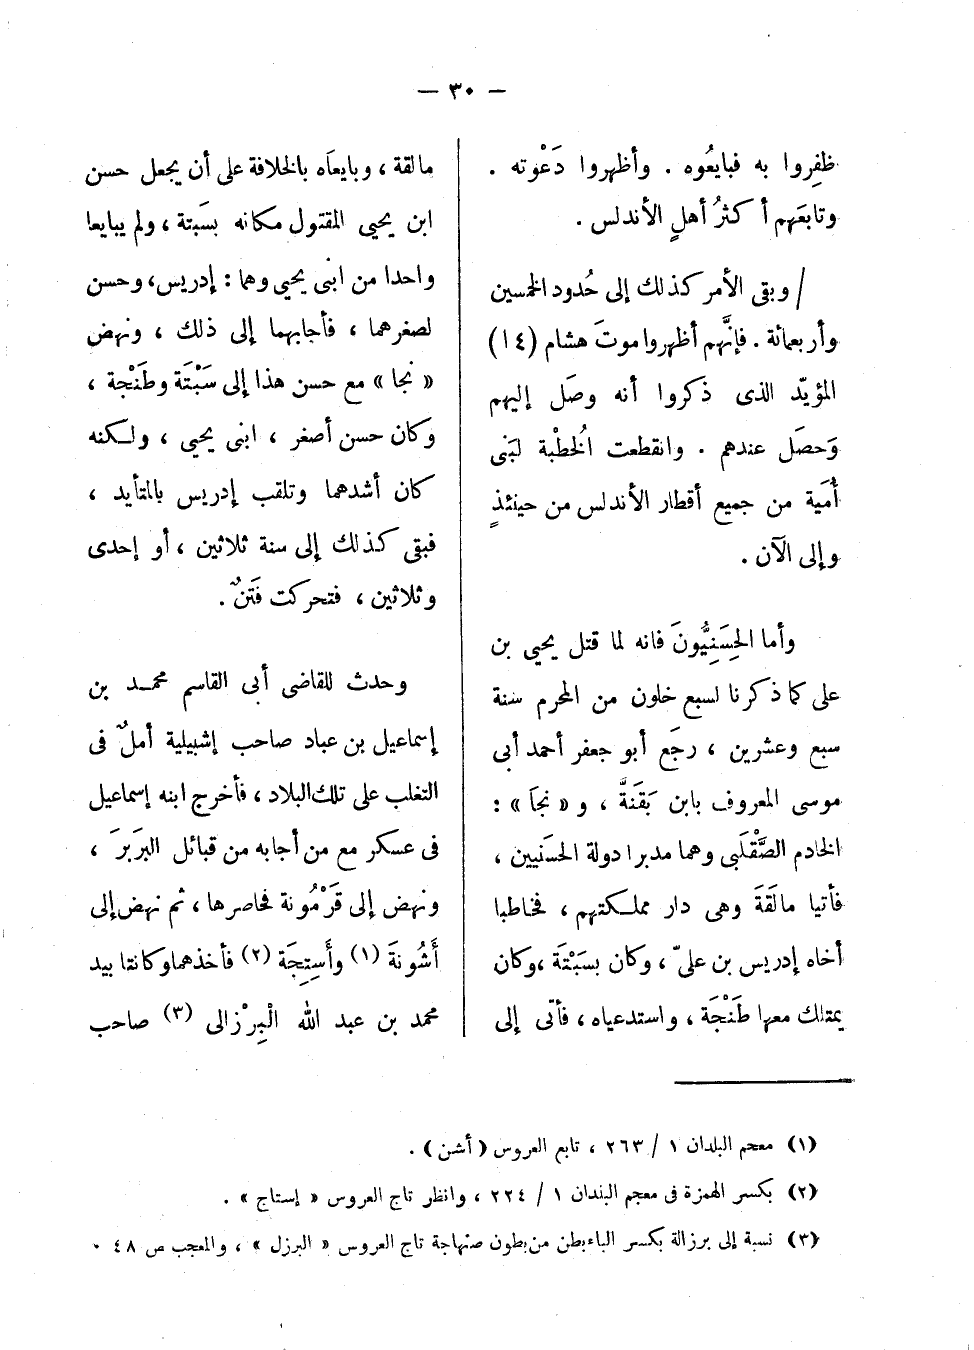 — ٣٠ —
ظفِروا به فبايعُوه . وأظهروا دَعْوته .
وتابعَهم أكثرُ أهلِ الأندلس .
/ وبقى الأمر كذلك إلى حُدود الخمسين
وأربعمائة . فإنَّهم أظهروا موتَ هشام (١٤)
المؤيّد الذى ذكروا أنه وصَل إليهم
وَحصَل عندهم . وانقطعت الخُطْبة لبَنى
أُمَية من جميع أقطار الأندلس من حينئذٍ
وإلى الآن .
وأما الحِسَنِيُّونَ فانه لما قتل يحيى بن
على كما ذكرنا لسبع خلون من المحرم سنة
سبع وعشرين ، رجَع أبو جعفر أحمد أبى
موسى المعروف بابن بَقَنَّة ، و « نجَا » :
الخادم الصَّقْلَبى وهما مدبرا دولة الحسَنيين ،
فأتيا مالَقَةَ وهى دار مملكتهم ، فخاطبا
أخاه إدريس بن علىّ ، وكان بسَبْتَة ، وكان
يمتلك معها طَنْجَة ، واستدعياه ، فأتى إلى
مالقة ، وبايعاَه بالخلافة على أن يجعل حسن
ابن يحيى المقتول مكانه بسَبتة ، ولم يبايعا
واحدا من ابنى يحيى وهما : إدريس، وحسن
لصغرهما ، فأجابهما إلى ذلك ، ونهض
« نجا » مع حسن هذا إلى سَبْتَة وطَنْجة ،
وكان حسن أصغر ، ابنى يحيى ، ولكنه
كان أشدهما وتلقب إدريس بالمتأيد ،
فبقى كذلك إلى سنة ثلاثين ، أو إحدى
وثلاثين ، فتحركت فَتَنٌ .
وحدث للقاضى أبى القاسم محمد بن
إسماعيل بن عباد صاحب إشبيلية أملٌ فى
التغلب على تلك البلاد ، فأخرج ابنه إسماعيل
فى عسكر مع من أجابه من قبائل البرَبرَ ،
ونهض إلى قَرْمُونة فحاصرها ، ثم نهض إلى
أَشُونةَ (١) وأَسِتِجَة (٢) فأخذهما وكانتا بيد
محمد بن عبد الله الْبِرْزالى (٣) صاحب
(١) معجم البلدان ١ / ٢٦٣ ، تابع العروس ( أشن ) .
(٢) بكسر الهمزة فى معجم البندان ١ / ٢٢٤ ، وانظر تاج العروس « إستاج » .
(٣) نسبة إلى برزالة بكسر الباء بطن من بطون صنهاجة تاج العروس « البرزل » ، والمعجب ص ٤٨ .